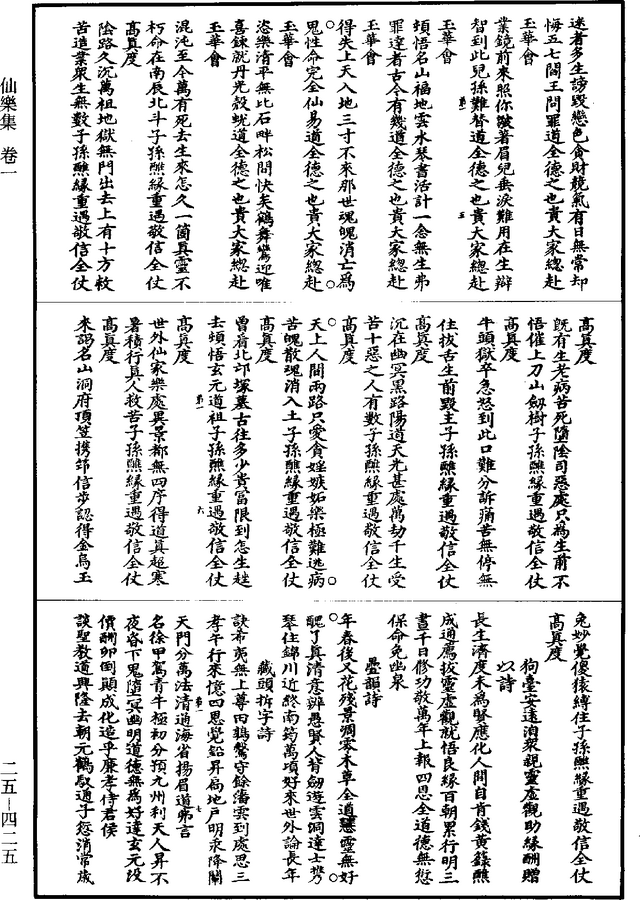 迷者多生謗毀戀色貪財競氣有日無常却
悔五七閻王問罪道全德之也貴大家總赴
玉華會
業鏡前來照你皺著眉兒垂淚難用在生辯
智到此兒孫難替道全德之也貴大家總赴
玉華會
頓悟名山福地雲水琴書活計一念無生弗
罪達者古今有幾道全德之也貴大家總赴
玉華會
得失上天入地三寸不來那世魂魄消亡為
鬼性命完全仙易道全德之也貴大家總赴
玉華會
恣樂清平無比石畔松間快矣鶴舞鸞迎唯
喜鍊就丹光殼蛻道全德之也貴大家總赴
玉華會
混沌至今萬有死去生來怎久一箇真靈不
朽命在南辰北斗子孫醮緣重遇敬信全仗
高真度
陰路久沉萬祖地獄無門出去上有十方救
苦造業衆生無數子孫醮緣重遇敬信全仗
高真度
既有生老病苦死隨陰司惡處只為生前不
悟催上刀山劒樹子孫醮緣重遇敬信全仗
高真度
牛頭獄卒急怒到此口難分訴痛苦無停無
住拔舌生前毀主子孫醮緣重遇敬信全仗
高真度
沉在幽冥黑路陽道天光甚處萬劫千生受
苦十惡之人有數子孫醮緣重遇敬信全仗
高真度
天上人間兩路只愛貪婬嫉妬樂極難逃病
苦魄散魂消入土子孫醮緣重遇敬信全仗
高真度
曾看北邙塚墓古往多少貴富限到怎生趓
去頓悟玄元道祖子孫醮緣重遇敬信全仗
高真度
世外仙家樂處異景都無四序得道真超寒
暑積行真人救苦子孫醮緣重遇敬信全仗
高真度
來謁名山洞府頂笠携筇信步認得金烏玉
兔妙覺傻猿縛住子孫醮緣重遇敬信全仗
高真度
狗臺安遠泊衆説靈虛觀助緣酬贈
以詩
長生濟度未為賢應化人間自肯錢黃籙醮
成通薦拔靈虛觀就悟良緣百朝累行明三
晝千日修功敬萬年上報四恩全道德無愆
保命免幽泉
疊韻詩
年春後又花殘景凋零木草全道慧靈無好
醜了真清意辨愚賢人背劒遊雲洞達士携
琴住錦川近終南筠萬項好來世外論長年
藏頭拆字詩
訣希夷無上尊田鶉鷇守餘瀋雲到處思三
孝午行來憶四恩覺鉛昇扃地戶明汞降闢
天門分萬法清通海省揚眉道弗言
名徐甲駕青牛極初分預九州利天人昇不
夜昏下鬼隨冥幽明道德無為好達玄元没
價酬卯倒顛成化造乎廉孝侍君侯
談聖教道興隆去朝元鶴馭通子愆消常歲
仙樂集 卷一
二五—四二五